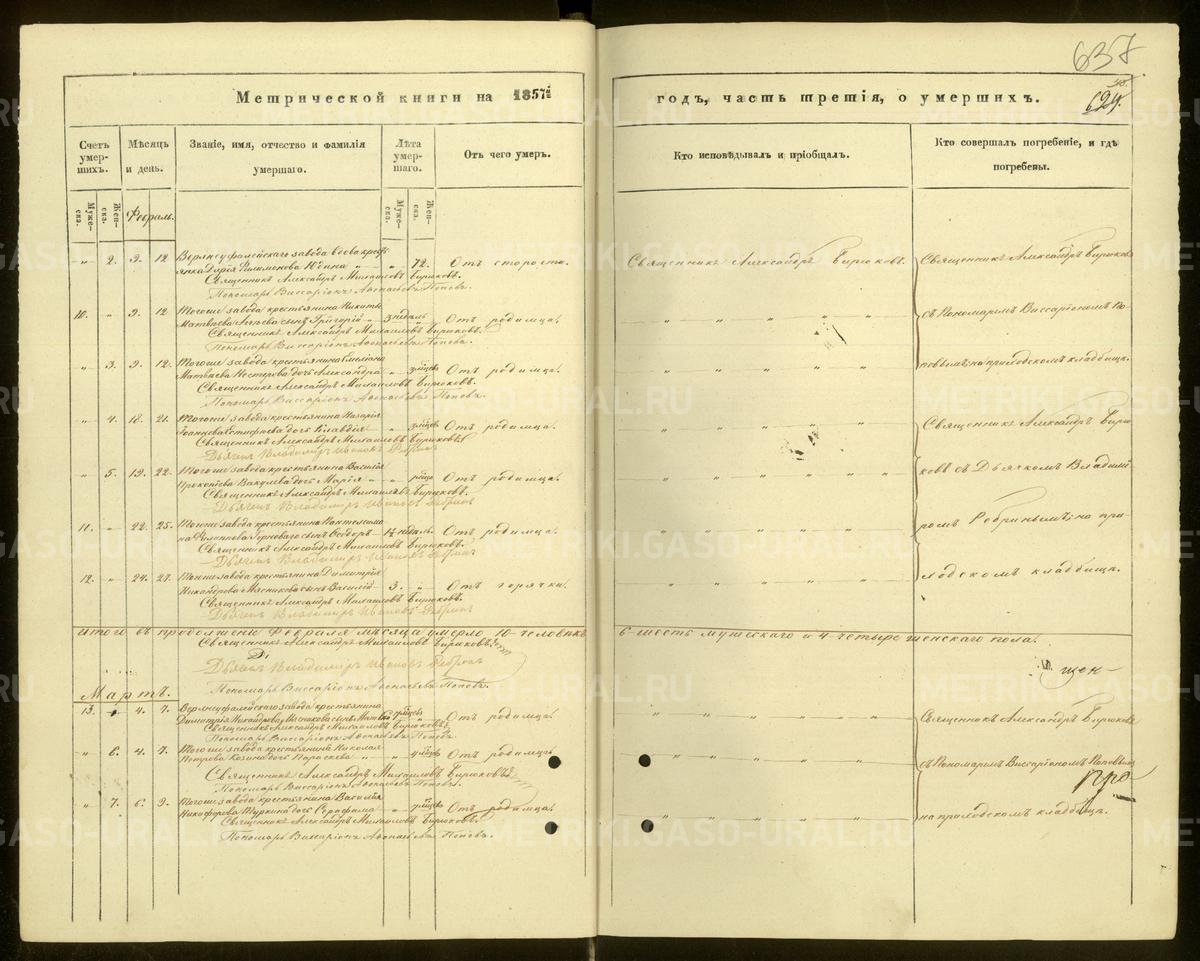 637
Метрической книги на 1857й годъ, часть третія, о умершихъ.
629.
Счетъ умершихъ.
Мѣсяцъ и день.
Званіе, имя, отчество и фамилія умершаго.
Лѣта умершаго.
Отъ чего умеръ.
Кто исповѣдывалъ и пріобщалъ.
Кто совершалъ погребеніе, и гдѣ погребены.
Муже-ска. Жен-ска. Феврал. Муже-ска. Жен-ска.
" 2. 9. 12 Верхнеуфалейскаго завода вдова крестьянка Дарія Филимонова Юдина " 72. Отъ старости. Священникъ Александръ Бирюковъ. Священникъ Александръ Бирюковъ
Священникъ Александръ Михаиловъ Бирюковъ.
Пономарь Виссаріонъ Аѳонасьевъ Поповъ.
10. " 9. 12 Тогоже завода крестьянина Никиты
Матвѣева сынъ Григорій 3 недѣль " Отъ родимца. съ Пономаремъ Виссаріономъ По-
Священникъ Александръ Михаиловъ Бирюковъ.
Пономарь Виссаріонъ Аѳонасьевъ Поповъ.
" 3. 9. 12. Тогоже завода крестьянина
Матвѣева Нестерова дочь Александра " Отъ родимца. повымъ, на приходскомъ кладбищѣ.
Священникъ Александръ Михаиловъ Бирюковъ.
Пономарь Виссаріонъ Аѳонасьевъ Поповъ.
" 4. 18. 21. Тогоже завода крестьянина Назарія
дочь Клавдія " Отъ родимца. Священникъ Александръ Бирю-
Священникъ Александръ Михаиловъ Бирюковъ
Дьячекъ Владимиръ Ивановъ Ребринъ
" 5. 19. 22. Тогоже завода крестьянина Василія
Прокопьева Вакулева дочь Марія " Отъ родимца. ковъ съ Дьячкомъ Владимі-
Священникъ Александръ Михаиловъ Бирюковъ.
Дьячекъ Владимиръ Ивановъ Ребринъ
11. " 22. 25. Тогоже завода крестьянина Пантелеймо-
на Филиппова сынъ Ѳедоръ " Отъ родимца. ромъ Ребринымъ, на при-
Священникъ Александръ Михаиловъ Бирюковъ.
Дьячекъ Владимиръ Ивановъ Ребринъ
12. " 24. 27. Тогоже завода крестьянина Димитрія
Никандрова Мясникова сынъ Василій 3. " Отъ горячки. ходскомъ кладбищѣ.
Священникъ Александръ Михаиловъ Бирюковъ.
Дьячекъ Владимиръ Ивановъ Ребринъ
Итого въ продолженіе Февраля мѣсяца умерло 10 человѣкъ 6-шесть мужескаго и 4-четыре женскаго пола.
Священникъ Александръ Михаиловъ Бирюковъ
Дьячекъ Владимиръ Ивановъ Ребринъ
Пономарь Виссаріонъ Аѳонасьевъ Поповъ.
Мартъ.
13. 4. 7. Верхнеуфалейскаго завода крестьянина
Димитрія Никандрова Мясникова сынъ Отъ родимца. Священникъ Александръ Бирюковъ
Священникъ Александръ Михаиловъ Бирюковъ
Пономарь Виссаріонъ Аѳонасьевъ Поповъ
" 6. 4. 7. Тогоже завода крестьянина Николая
Петрова Козина дочь Параскева " Отъ родимца. съ Пономаремъ Виссаріономъ Поповымъ
Священникъ Александръ Михаиловъ Бирюковъ
Пономарь Виссаріонъ Аѳонасьевъ Поповъ.
" 7. 6. 9. Тогоже завода крестьянина Василія
Никифорова Туркина дочь Серафима " Отъ родимца. на приходскомъ кладбищѣ.
Священникъ Александръ Михаиловъ Бирюковъ.
Пономарь Виссаріонъ Аѳонасьевъ Поповъ.
METRIKI.GASO-URAL.RU